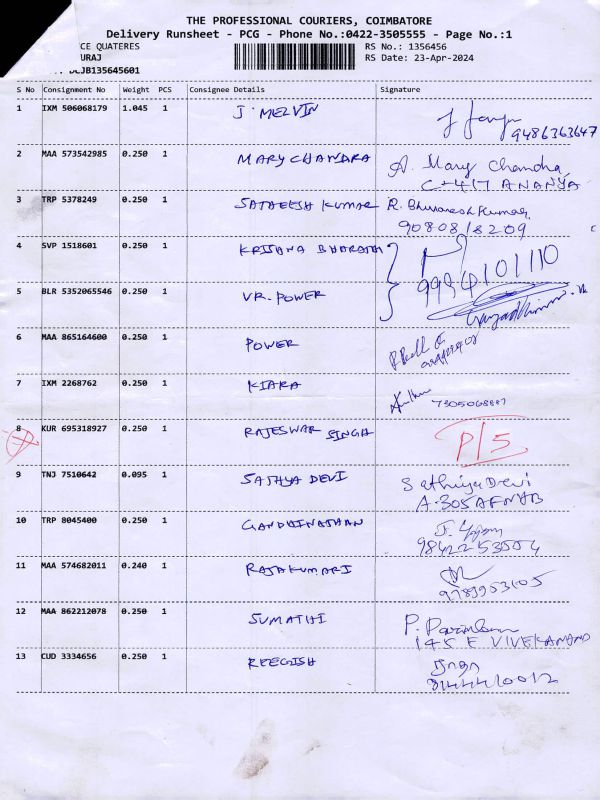 THE PROFESSIONAL COURIERS, COIMBATORE
Delivery Runsheet - PCG - Phone No.:0422-3505555 - Page No.:1
CE QUATERES RS No.: 1356456
URAJ RS Date: 23-Apr-2024
DCJB135645601
S No Consignment No Weight PCS Consignee Details Signature
1 IXM 506068179 1.045 1 J. MELVIN
9486363647
2 MAA 573542985 0.250 1 MARY CHANDRA A. Mary Chandra
C-417 ANANYA
3 TRP 5378249 0.250 1 SATHEESH KUMAR R. Bhuvanesh Kumar
9080818209
4 SVP 1518601 0.250 1 KRISHNA BHARATH
9994101110
5 BLR 5352065546 0.250 1 VR. POWER
6 MAA 865164600 0.250 1 POWER
7 IXM 2268762 0.250 1 KIARA
7305068887
8 KUR 695318927 0.250 1 RAJESWAR SINGH P/S
9 TNJ 7510642 0.095 1 SATHYA DEVI Sathiya Devi
A-305
10 TRP 8045400 0.250 1 GANDHINATHAN
9842253504
11 MAA 574682011 0.240 1 RAJAKUMARI
9789953105
12 MAA 862212078 0.250 1 SUMATHI P.
145 E VIVEKANAND
13 CUD 3334656 0.250 1 REEGISH